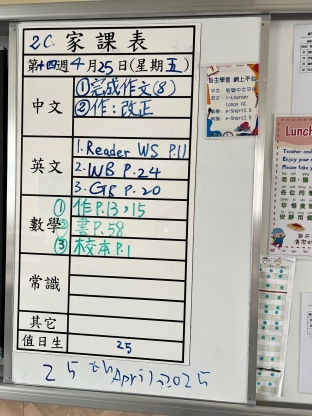 2C 家課表
第十四週4月25日(星期五)
中文
①完成作文(8)
②作:改正
英文
1. Reader WS P.11
2. WB P.24
3. GR P.20
數學
① 作P.13,15
② 書P.58
③ 校本P.1
常識
其它
值日生
25
25th April, 2025
自主學習 網上平台
Lunch
Teacher and
Enjoy your
Please take